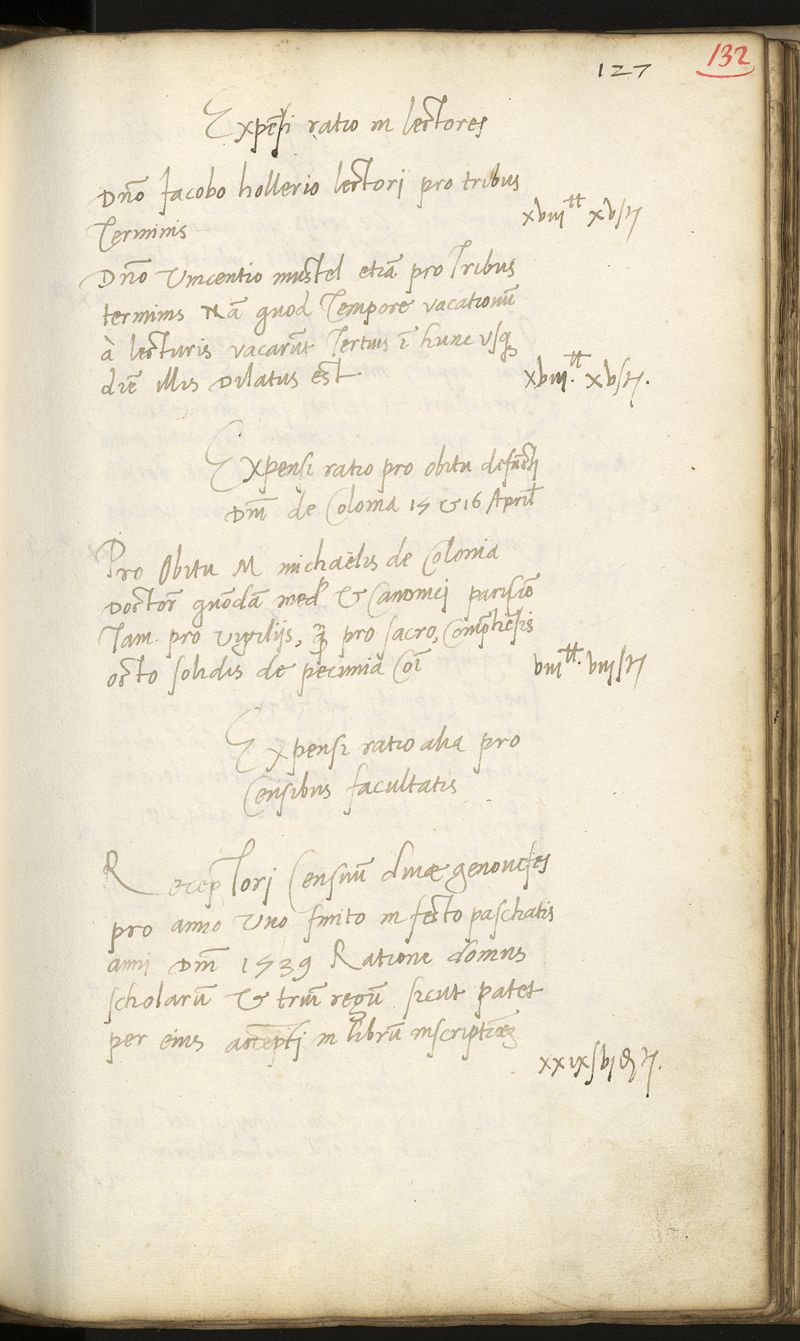 127
132
Expēsi ratio in lectores
Dnō Jacobo hollerio lectori pro tribus
Terminis
xviii tt xv s t
Dnō Vincentio mustel etiā pro Tribus
terminis Nā quod Tempore vacationū
à lecturis vacarūt Tertius ī hunc vsq
diē illis dilatus est
xviii. tt xv s t.
Expensi ratio pro obitu defūcti
Dnī de Colonia 15 & 16 Aprił
Pro Obitu M michaëlis de Colonia
Doctor quōdā med & Canonici parisiē
Tam pro vigiliis, q̄ pro sacro,
octo solidis de pecunia Coī
viii tt. viii s t
Expensi ratio alia pro
Censibus facultatis
Receptori Censuū divæ genovefes
pro anno Uno finito in festo paschatis
anni Dnī 1539 Ratione domus
scholarū & triū regū sicut patet
per eius in librū
xxix s vi d t.